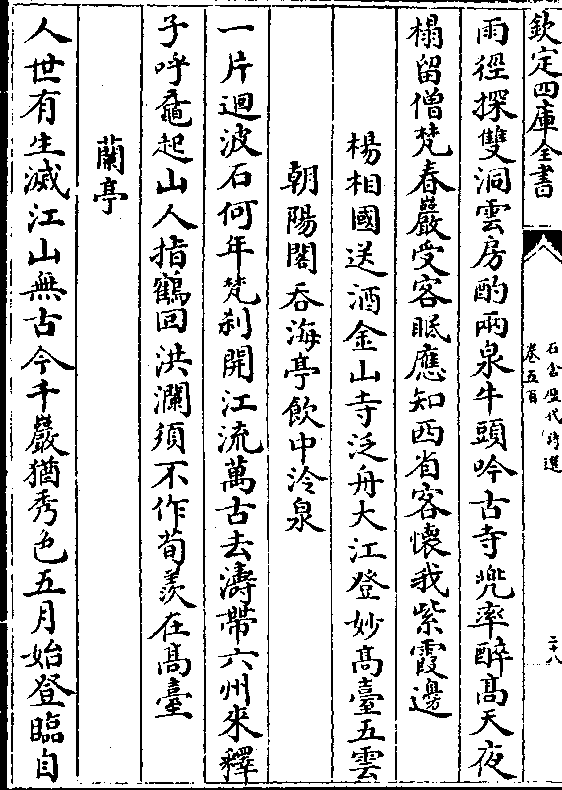 欽定四庫全書
石倉歴代詩選
卷五百
二十八
雨徑探雙洞雲房酌兩泉牛頭吟古寺兠率醉髙天夜
榻留僧梵春巖受客眠應知西省客懷我紫霞邊
楊相國送酒金山寺泛舟大江登妙髙臺五雲
朝陽閣吞海亭飲中泠泉
一片迴波石何年梵刹開江流萬古去濤帶六州來釋
子呼黿起山人指鶴回洪瀾須不作荀羨在髙臺
蘭亭
人世有生滅江山無古今千巖猶秀色五月始登臨自